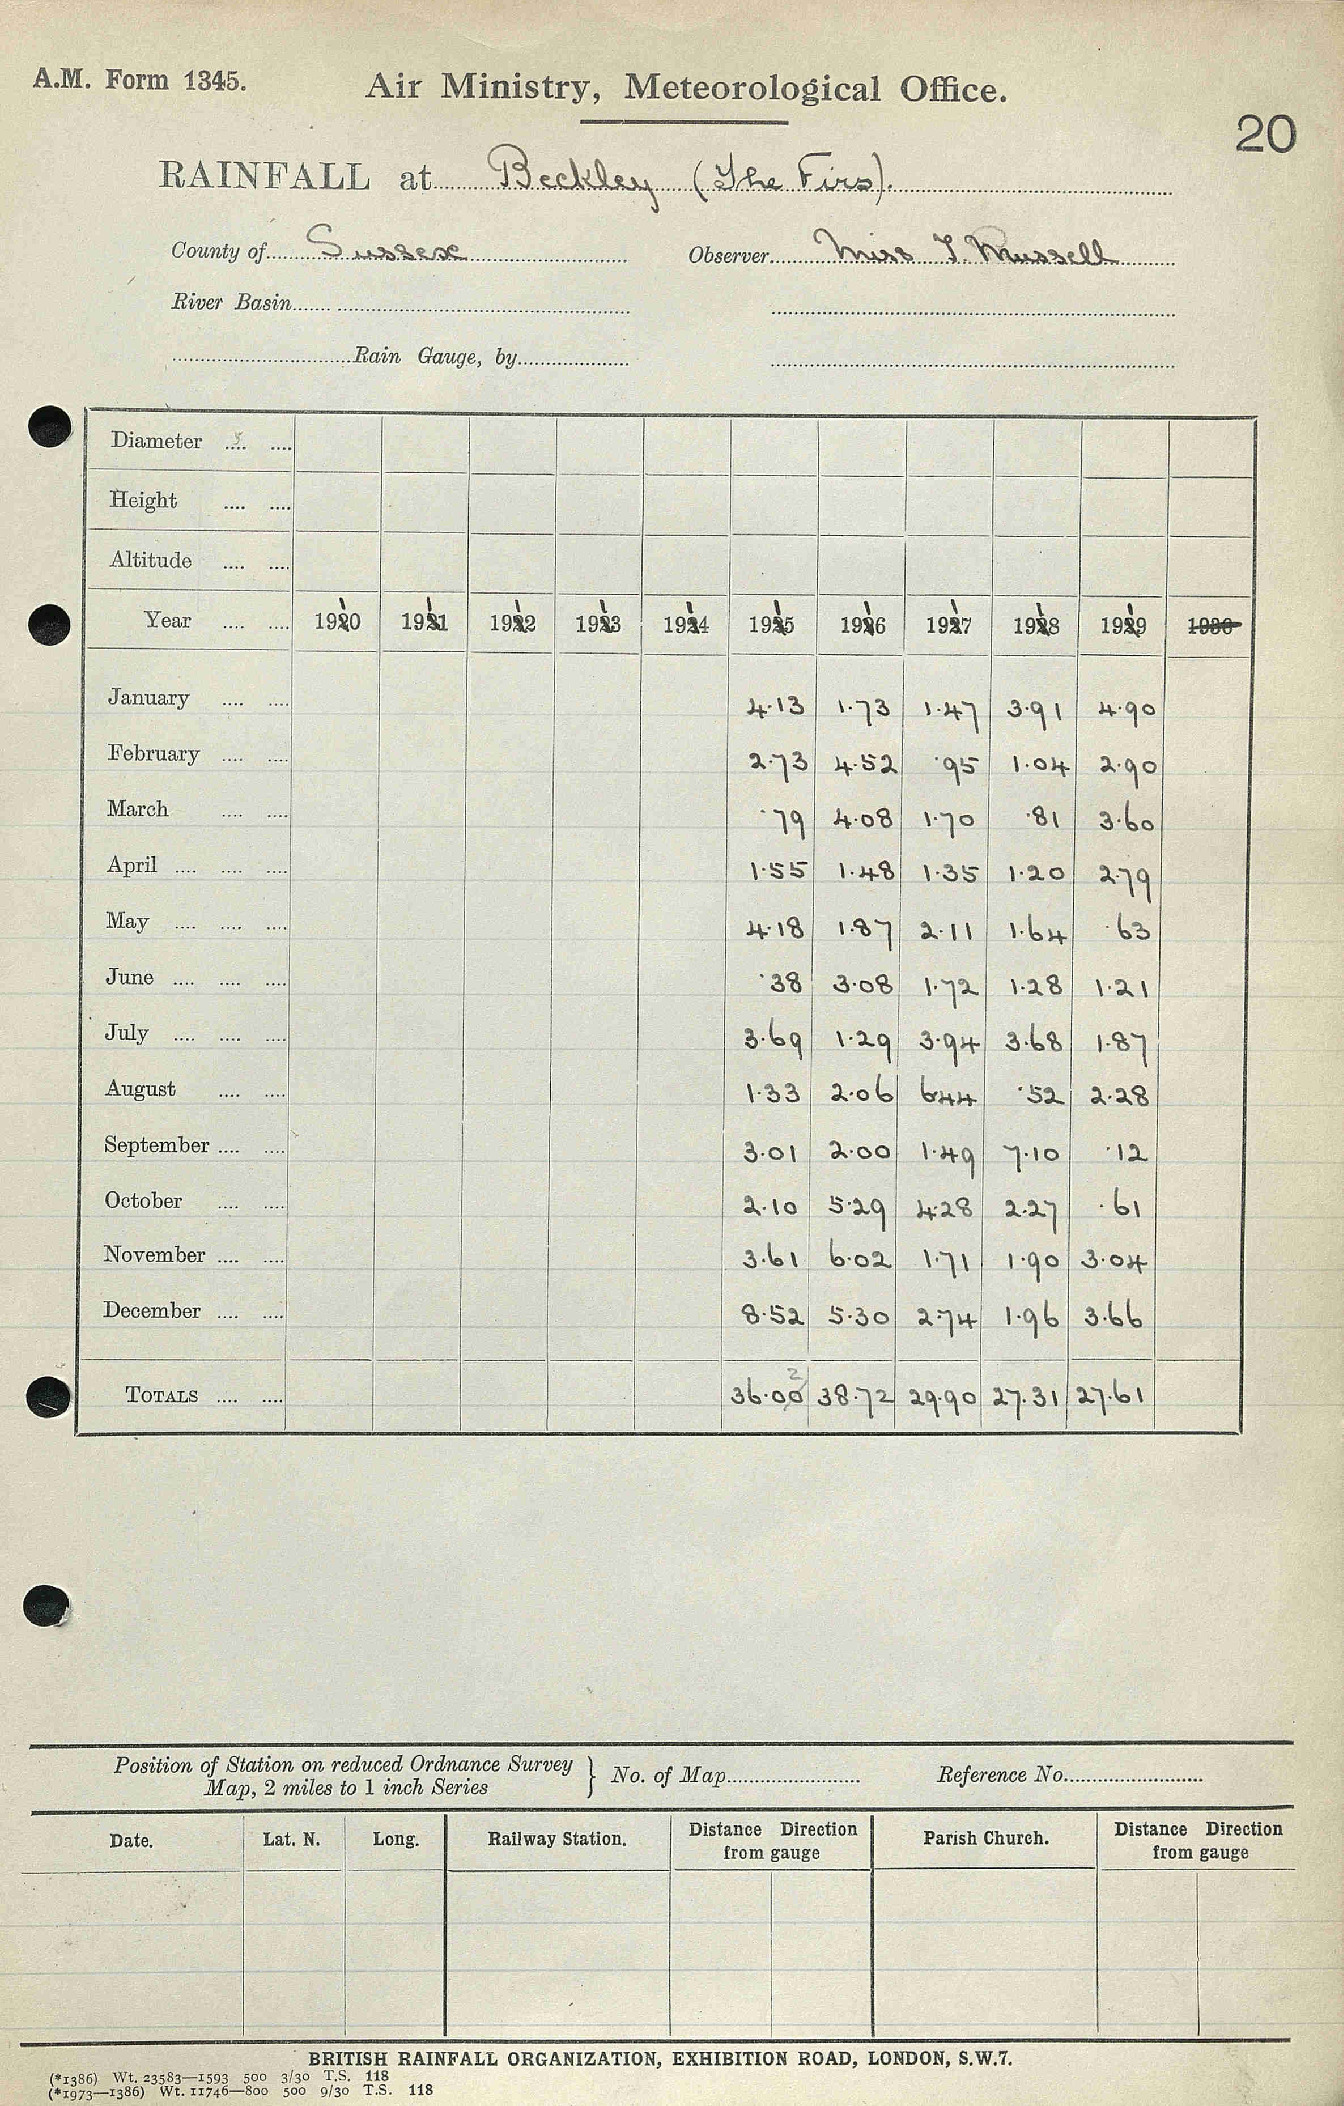 A.M. Form 1345.
Air Ministry, Meteorological Office.
20
RAINFALL at Beckley (The Firs).
County of Sussex Observer Miss I Mussell
River Basin
Rain Gauge, by
Diameter 5
Height
Altitude
Year 1910 1911 1912 1913 1914 1915 1916 1917 1918 1919 1930
January 4.13 1.73 1.47 3.91 4.90
February 2.73 4.52 .95 1.04 2.90
March .79 4.08 1.70 .81 3.60
April 1.55 1.48 1.35 1.20 2.79
May 4.18 1.87 2.11 1.64 .63
June .38 3.08 1.72 1.28 1.21
July 3.69 1.29 3.94 3.68 1.87
August 1.33 2.06 6.44 .52 2.28
September 3.01 2.00 1.49 7.10 .12
October 2.10 5.29 4.28 2.27 .61
November 3.61 6.02 1.71 1.90 3.04
December 8.52 5.30 2.74 1.96 3.66
2
TOTALS 36.00 38.72 29.90 27.31 27.61
Position of Station on reduced Ordnance Survey
Map, 2 miles to 1 inch Series } No. of Map Reference No.
Date. Lat. N. Long. Railway Station. Distance Direction from gauge Parish Church. Distance Direction from gauge
BRITISH RAINFALL ORGANIZATION, EXHIBITION ROAD, LONDON, S.W.7.
(*1386) Wt. 23583—1593 500 3/30 T.S. 118
(*1973—1386) Wt. 11746—800 500 9/30 T.S. 118